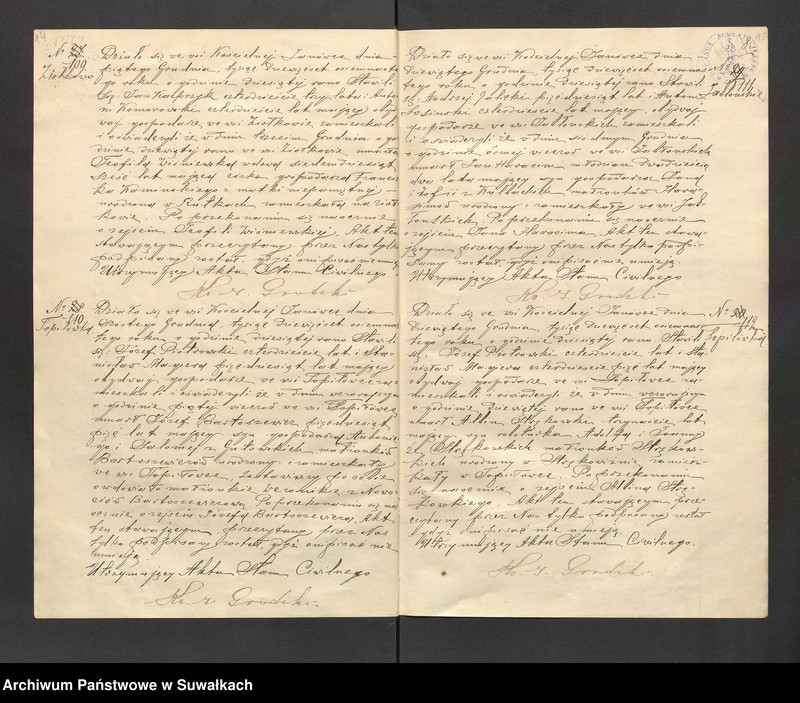 No 87
109
Ziółkowo
Działo się we wsi Kościelnej Janówce dnia
piątego Grudnia, tysiąc dziewięćset osiemnaste-
go roku o godzinie dziesiątej rano. Stawili
się Jan Kacprzyk czterdzieści trzy lata i Anto-
ni Komorowski czterdzieści lat mający obyd-
waj gospodarze we wsi Ziółkowie zamieszkali
i oświadczyli że w dniu trzecim Grudnia o go-
dzinie dziewiątej rano we wsi Ziółkowie umarła
Teofila Wiśniewska wdowa siedemdziesiąt
sześć lat mająca córka gospodarza Francisz-
ka Kamińskiego i matki niepamiętnej
urodzona w Rutkach zamieszkała na Ziół-
kowie. Po przekonaniu się naocznie
o zejściu Teofili Wiśniewskiej, Akt ten
stawającym przeczytany przez Nas tylko
podpisany został, gdyż oni pisać nie umieją
Utrzymujący Akta Stanu Cywilnego
Ks. Grodzki
No 88
110
Topiłówka
Działo się we wsi Kościelnej Janówce dnia
szóstego Grudnia, tysiąc dziewięćset osiemna-
stego roku o godzinie dziesiątej rano. Stawili
się Józef Piotrowski czterdzieści lat i Sta-
nisław Magiera pięćdziesiąt lat mający
obydwaj gospodarze we wsi Topiłówce za-
mieszkali i oświadczyli że w dniu wczorajszym
o godzinie piątej wieczór we wsi Topiłówce
umarł Józef Bartoszewicz pięćdziesiąt
pięć lat mający syn gospodarza Antonie-
go i Salomei z Gutowskich małżonków
Bartoszewiczów urodzony i zamieszkały
we wsi Topiłówce, zostawiwszy po sobie
owdowiałą małżonkę Weronikę z
Bartoszewiczową. Po przekonaniu się na-
ocznie o zejściu Józefa Bartoszewicza, Akt
ten stawającym przeczytany przez Nas
tylko podpisany został, gdyż oni pisać nie
umieją
Utrzymujący Akta Stanu Cywilnego
Ks. Grodzki
111
Jabłońskie
Działo się we wsi Kościelnej Janówce dnia
dziewiątego Grudnia, tysiąc dziewięćset osiemnas-
tego roku, o godzinie dziesiątej rano. Stawili
się Andrzej pięćdziesiąt lat i Antoni
Sosiński czterdzieści lat mający obydwaj
gospodarze we wsi Jabłońskich zamieszka-
li i oświadczyli że w dniu siódmym Grudnia
o godzinie ósmej wieczór we wsi Jabłońskich
umarł Jan Harasim młodzian dwadzieścia
dwa lata mający syn gospodarza Jana
i Zofii z małżonków Hara-
simów urodzony i zamieszkały we wsi Jab-
łońskich. Po przekonaniu się naocznie
o zejściu Jana Harasima Akt ten stawa-
jącym przeczytany przez Nas tylko podpi-
sany został, gdyż oni pisać nie umieją
Utrzymujący Akta Stanu Cywilnego
Ks. Grodzki
No
112
Topiłówka
Działo się we wsi Kościelnej Janówce dnia
dziewiątego Grudnia, tysiąc dziewięćset osiemnas-
tego roku, o godzinie dziesiątej rano. Stawili
się Józef Piotrowski czterdzieści lat i Sta-
nisław Magiera czterdzieści pięć lat mający
obydwaj gospodarze we wsi Topiłówce za-
mieszkali i oświadczyli że w dniu wczorajszym
o godzinie dziewiątej rano we wsi Topiłówce
umarł Albin trzynaście lat
mający syn robotnika Adolfa i Joanny
z małżonków
urodzony w zamiesz-
kały w Topiłówce. Po przekonaniu
się naocznie o zejściu Albina
Akt ten stawającym prze-
czytany przez Nas tylko podpisany został
gdyż oni pisać nie umieją
Utrzymujący Akta Stanu Cywilnego.
Ks. Grodzki
Archiwum Państwowe w Suwałkach